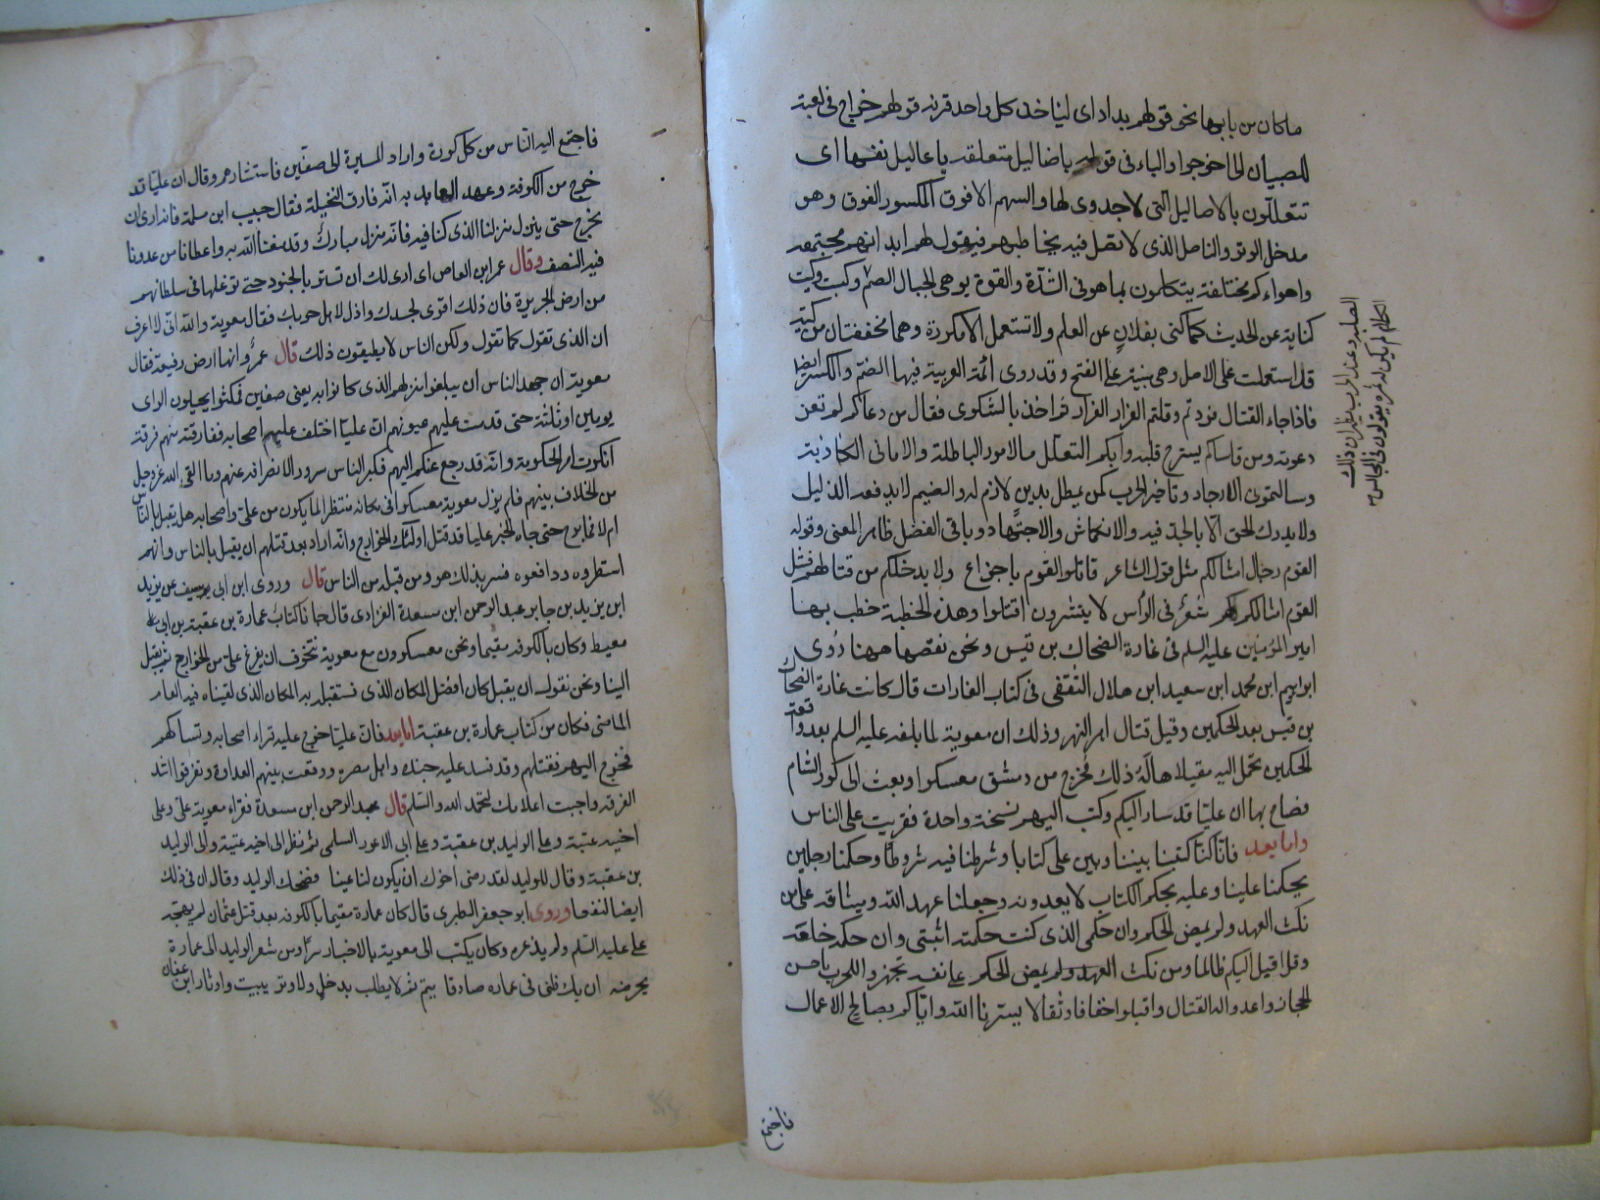 ما كان من بابها نحو قولهم بداد اى لياخذ كل واحد قرنه قولهم خراج فى لعبة
للصبيان اى اخرجوا والباء فى قوله باضاليل متعلقة باعاليل نفسها اى
تتعللون بالاضاليل التى لا جدوى لها والسهم الافوق المكسور الفوق وهو
مدخل الوتر والناصل الذى لا نصل فيه يخاطبهم فيقول لهم ابدانهم مجتمعة
واهواءكم مختلفة يتكلمون بما هو فى الشدة والقوة يوهى الجبال الصم وكيت وكيت
كناية عن الحديث كما كنى بفلان عن العلم ولا تستعمل الا مكررة وهما مخففتان من كية
قد استعملت على الاصل وهى مبنية على الفتح وقد روى ائمة العربية فيها الضم والكسر ايضا
فاذا جاء القتال فررتم وقلتم الفرار الفرار ثم اخذ بالشكوى فقال من دعاكم لم تعز
دعوته ومن قاساكم يسترح قلبه دأبكم التعلل بالامور الباطلة والامانى الكاذبة
وسالتمونى الارجاء وتاخير الحرب كمن يمطل بدين لازم له والضيم لا يدفعه الذليل
ولا يدرك الحق الا بالجد فيه والانكماش والاجتهاد وباقى الفصل ظاهر المعنى وقوله
القوم رجال امثالكم مثل قول الشاعر قاتلوا القوم يا خزاع ولا يدخلكم من قتالهم فشل
القوم امثالكم لهم شعر فى الراس لا ينشرون ان قتلوا وهذه الخطبة خطب بها
امير المؤمنين عليه السلم فى غارة الضحاك بن قيس ونحن نقصها ههنا روى
ابراهيم ابن محمد ابن سعيد ابن هلال الثقفى فى كتاب الغارات قال كانت غارة الضحاك
بن قيس بعد الحكمين وقبل قتال اهل النهر وذلك ان معوية لما بلغه عليه السلم بعد واقعة
الحكمين تحمل اليه مقبلا هاله ذلك فخرج من دمشق معسكرا وبعث الى كور الشام
فصاح بها ان عليا قد سار اليكم وكتب اليهم نسخة واحدة فقريت على الناس
واما بعد فانا كنا كتبنا بيننا وبين على كتابا وشرطنا فيه شروطا وحكمنا رجلين
يحكمنا علينا وعليه بحكم الكتاب لا يعدونه وجعلنا عهد الله وميثاقه على من
نكث العهد ولم يمض الحكم وان حكمى الذى كنت حكمته اثبتنى وان حكمه خلعه
وقد اقبل اليكم ظالما ومن نكث العهد ولم يمض الحكم على نفسه تجهزوا للحرب باحسن
الجهاز واعدوا اله القتال واقبلوا خفافا وثقالا يسرنا الله واياكم بصالح الاعمال
الصلبة وعند الحرب يظهر ان ذلك
الكلام لم يكن له ثمرة يقولون فى المجالس
فاجتمع
فاجتمع اليه الناس من كل كورة واراد المسيرة الى صفين فاستشارهم وقال ان عليا قد
خرج من الكوفة وعهد العاهد به انه فارق النخيلة فقال حبيب ابن مسلمة فانى ارى ان
نخرج حتى ينزل منزلنا الذى كنا فيه فانه منزل مبارك وقد متعنا الله به واعطانا من عدونا
فيه النصف وقال عمر ابن العاص اى ارى لك ان تستو بالجنود حتى توغلها فى سلطانهم
من ارض الجزيرة فان ذلك اقوى لجندك واذل لاهل حربك فقال معوية والله انى لا اعرف
ان الذى تقول كما تقول ولكن الناس لا يطيقون ذلك قال عمرو انها ارض رفيعة فقال
معوية ان جهد الناس ان يبلغوا منزلهم الذى كانوا به يعنى صفين فمكثوا يجيلون الراى
يومين او ثلثة حتى قدمت عليهم عيونهم ان عليا اختلف عليهم اصحابه ففارقته منهم فرقة
انكرت امر الحكومة وانه قد رجع عنكم اليهم فكبر الناس سرورا لانصرافه عنهم وما القى الله عز وجل
من الخلاف بينهم فلم يزل معوية معسكرا فى مكانه منتظرا لما يكون من على واصحابه هل يقبل بالناس
ام لا فما برح حتى جاء الخبر عليا قد قتل اولئك الخوارج وانه اراد بعد قتلهم ان يقبل بالناس وانهم
استطروه ودافعوه فسر بذلك هو ومن قبله من الناس قال وروى ابن ابى يوسف عن يزيد
ابن يزيد بن جابر عبد الرحمن ابن مسعدة الفزارى قال جاءنا كتاب عمارة بن عقبة بن ابى
معيط وكان بالكوفة مقيما ونحن معسكرون مع معوية نتخوف ان يفرغ على من الخوارج ثم يقبل
الينا ونحن نقول ان يقبل كان افضل المكان الذى نستقبله به المكان الذى لقيناه فيه العام
الماضى فكان من كتاب عمارة بن عقبة اما بعد فان عليا خرج عليه قراء اصحابه ونساكهم
فخرج اليهم فقتلهم وقد فسد عليه جنده واهل مصره ووقعت بينهم العداوة وتفرقوا اشد
الفرقة واجبت اعلامك لتحمد الله والسلم قال عبد الرحمن ابن مسعدة فقراه معوية على وعلى
اخيه عتبة وعلى الوليد بن عقبة وعلى ابى الاعور السلمى ثم نظر الى اخيه عتبة والى الوليد
بن عقبة وقال للوليد لقد رضى اخوك ان يكون لنا عينا فضحك الوليد وقال ان فى ذلك
ايضا لنفعا وروى ابو جعفر الطبرى قال كان عمارة مقيما بالكوفة بعد قتل عثمان لم يهجه
على عليه السلم ولم يذعره وكان يكتب الى معوية بالاخبار سرا ومن شعر الوليد الى عمارة
يحرضه ان يك ظنى فى عماره صادقا ينم ثم لا يطلب بدخل ولا وتر يبيت واوتار ابن عفان